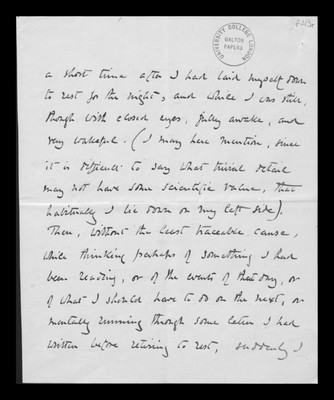 UNIVERSITY COLLEGE LONDON
GALTON
PAPERS
a short time after I had laid myself down
to rest for the night, and while I was still,
though with closed eyes, fully awake, and
very wakeful. (I may here mention, since
it is difficult to say what trivial detail
may not have some scientific value, that
habitually I lie down on my left side).
Then, without the least traceable cause,
while thinking perhaps of something I had
been reading, or of the events of that day, or
of what I should have to do on the next, or
mentally running through some letter I had
written before retiring to rest, suddenly I